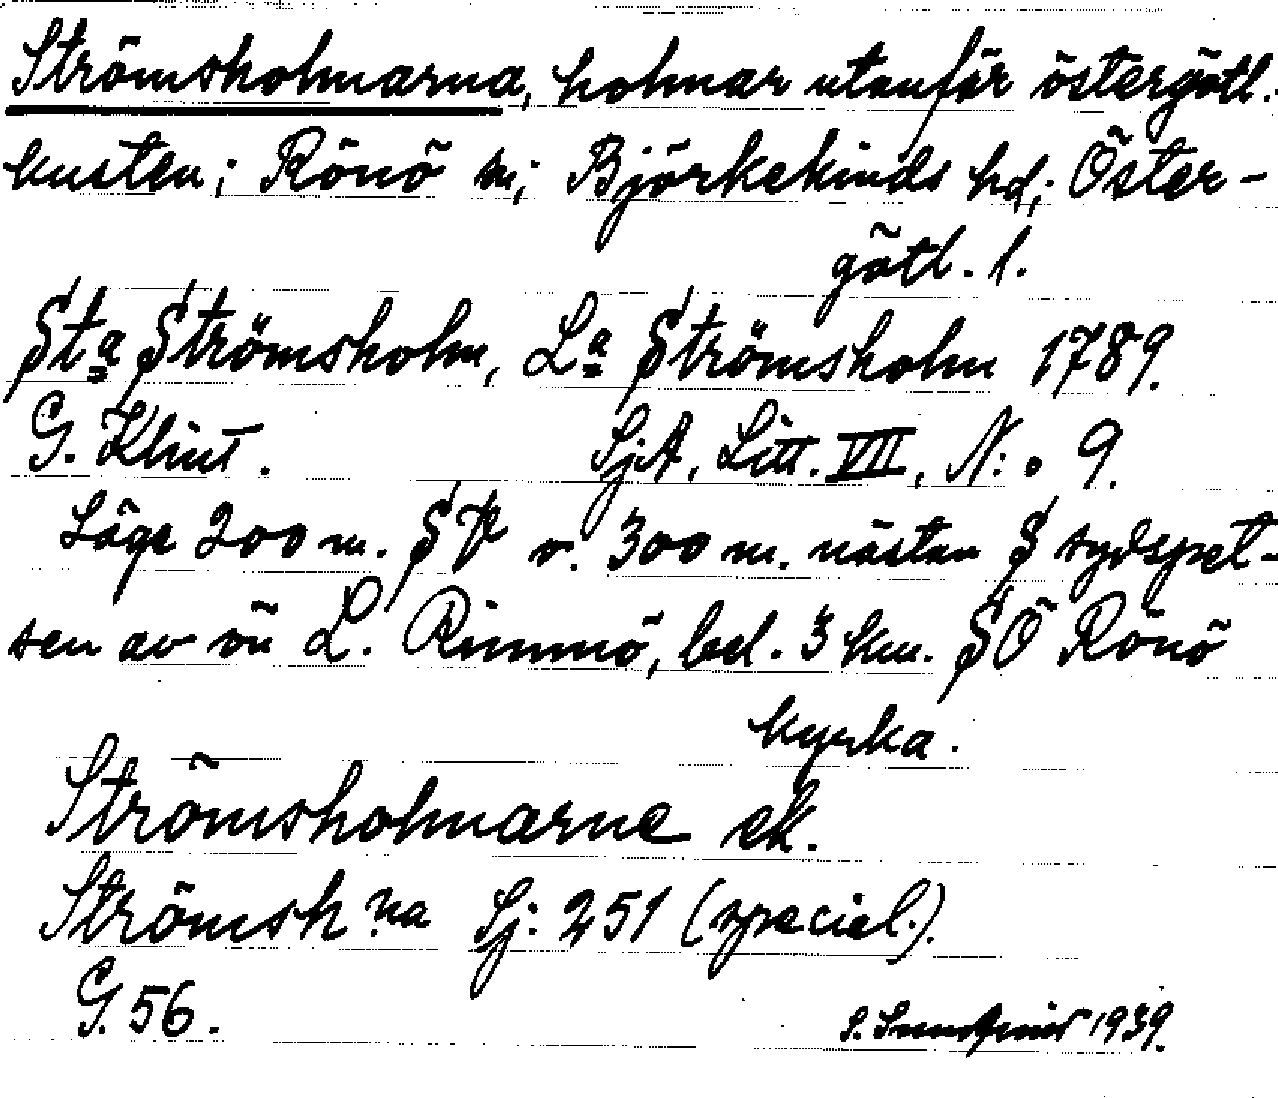 Strömsholmarna, holmar utanför östergötl.
kusten; Rönö sn; Björkekinds hd; Öster-
götl. l.
Sta Strömsholm, La Strömsholm 1789.
G. Klint. SjA, Litt. VII, N:o 9.
Läge 200 m. SV o. 300 m. nästan S sydspet-
sen av ön L. Rimmö, bel. 3 km. SÖ Rönö
kyrka.
Strömsholmarne ek.
Strömsh:na Sj: 251 (speciel.).
G. 56.
1939.